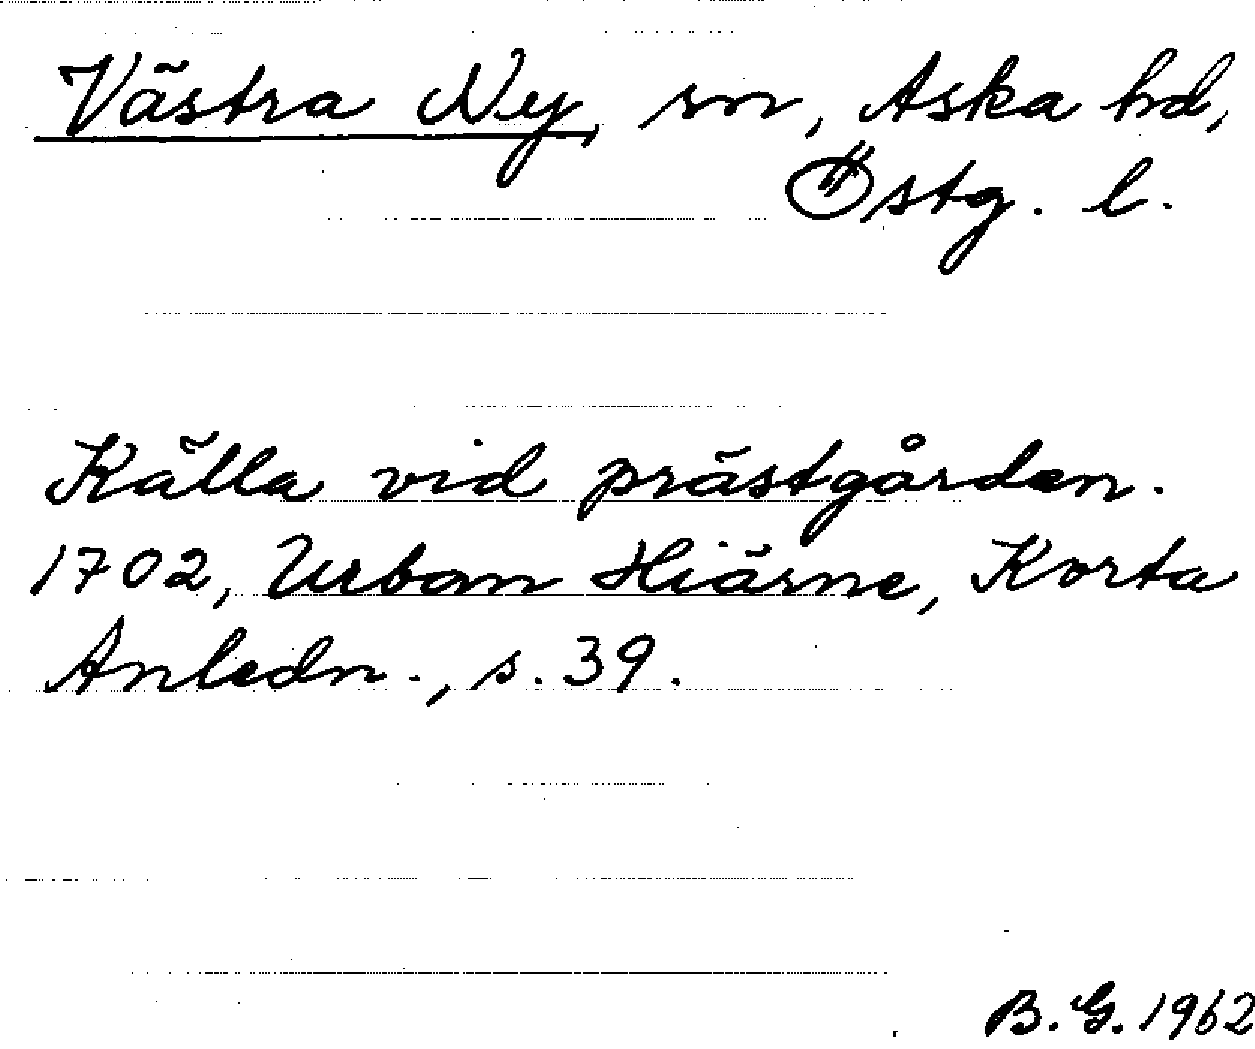 Västra Ny, sn, Aska hd,
Östg. l.
Källa vid prästgården.
1702, Urban Hiärne, Korta
Anledn., s. 39.
B. G. 1962